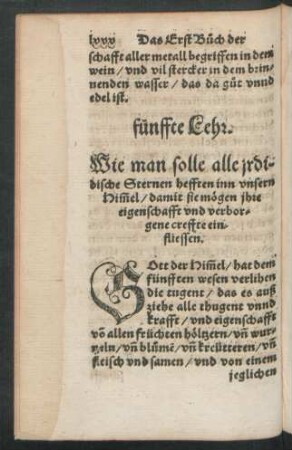 lxxx Das Erst Bůch der
schafft aller metall begriffen in dem
wein / vnd vil stercker in dem brin-
nenden wasser / das da gůt vnnd
edel ist.
fünffte Lehr.
Wie man solle alle jrdi-
dische Sternen hefften inn vnsern
Him̃el / damit sie mögen jhre
eigenschafft vnd verbor-
gene creffte ein-
fliessen.
GOtt der Him̃el / hat dem
fünfften wesen verlihen
die tugent / das es auß
ziehe alle thugent vnnd
krafft / vnd eigenschafft
võ allen früchten höltzern / vñ wur-
tzeln / vñ blůmẽ / vñ kreütteren / vñ
fleisch vnd samen / vnd von einem
jeglichen